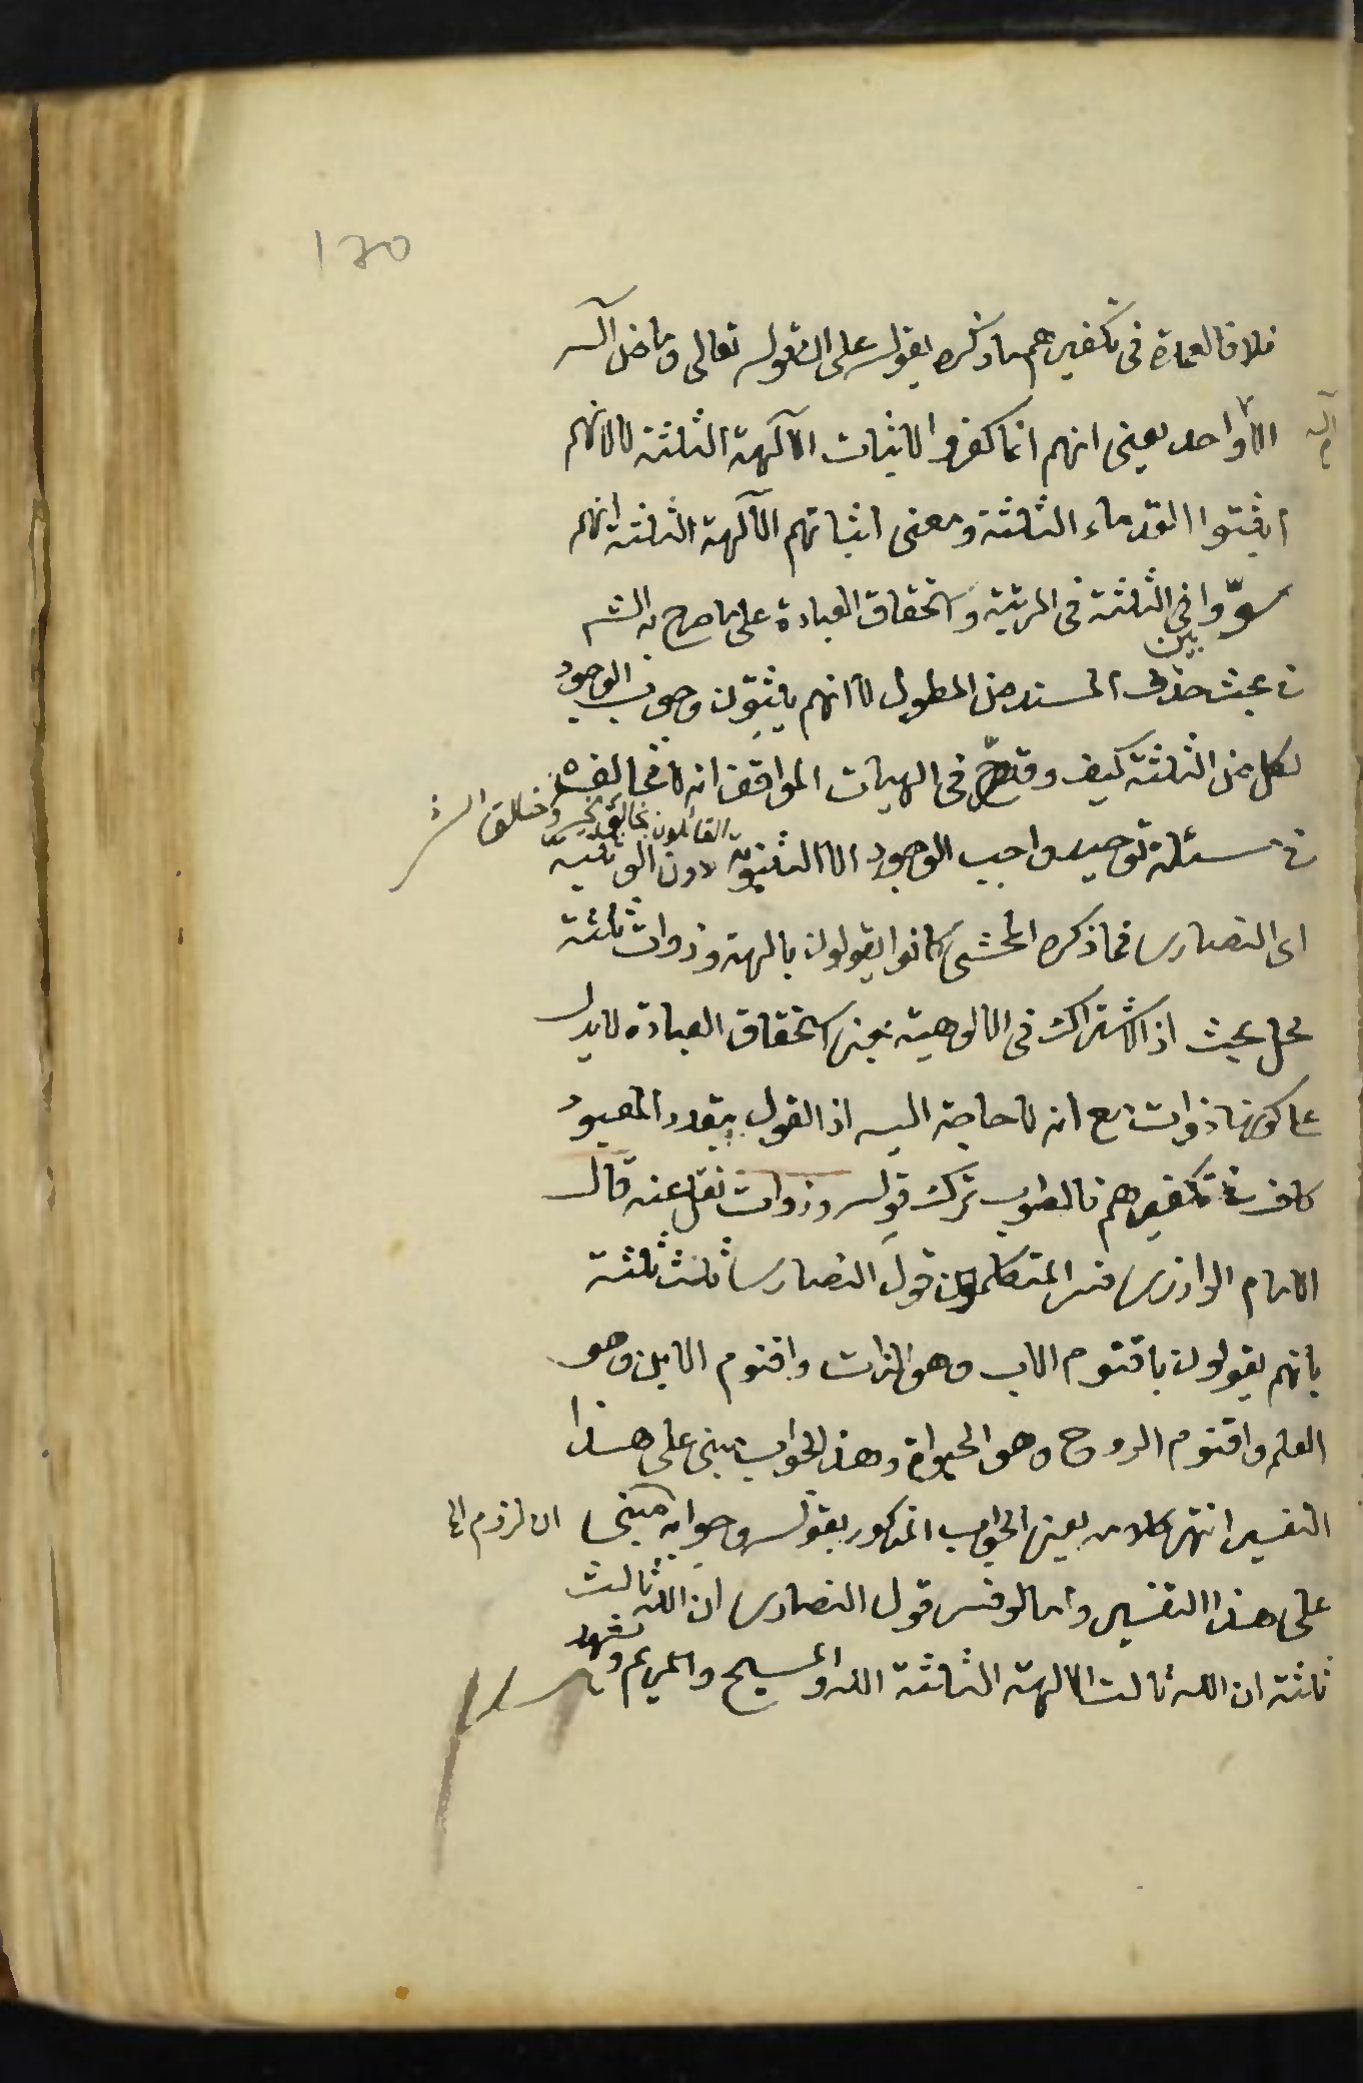 170
فلا فالعمدة في تكفيرهم ما ذكره بقوله على ان قوله تعالى وما من آله
الا واحد يعنى انهم انما كفروا لاثبات الآلهة الثلثة لا لانهم
آله
اثبتوا القدماء الثلثة ومعنى اثباتهم الآلهة الثلثة انهم
سوّوا في الثلثة في المرتبة واستحقاق العبادة على ما صرح به الشم
بين
في بحث حذف المسند من المطول لا انهم يثبتون وجوب الوجود
لكل من الثلثة كيف وقد صرّح في الهيات المواقف انه لا مخالف
في مسئلة توحيد واجب الوجود الا الثنوية دون الوثنية
القائلون بخالق الخير وخالق الشر
اى النصارى فما ذكره المحشى كانوا يقولون بالهة وذوات ثلثة
محل بحث اذ الاشتراك في الالوهية بمعنى استحقاق العبادة لا يدل
على كونها ذوات مع انه لا حاجة اليه اذ القول بتعدد المعبود
كاف في تكفيرهم فالصواب ترك قوله وذوات نقل عنه قال
الامام الرازى فسر المتكلمون قول النصارى ثالث ثلثة
بانهم يقولون باقنوم الاب وهو الذات واقنوم الابن وهو
العلم واقنوم الروح وهو الحيوة وهذا الجواب مبنى على هذا
التفسير انتهى كلامه يعنى الجواب المذكور بقوله وجوابه مبنى
ان لزوم
على هذا التفسير واما لو فسر قول النصارى ان الله ثالث
ثلثة ان الله ثالث الالهة الثلثة الله والمسيح والمريم ويشهد